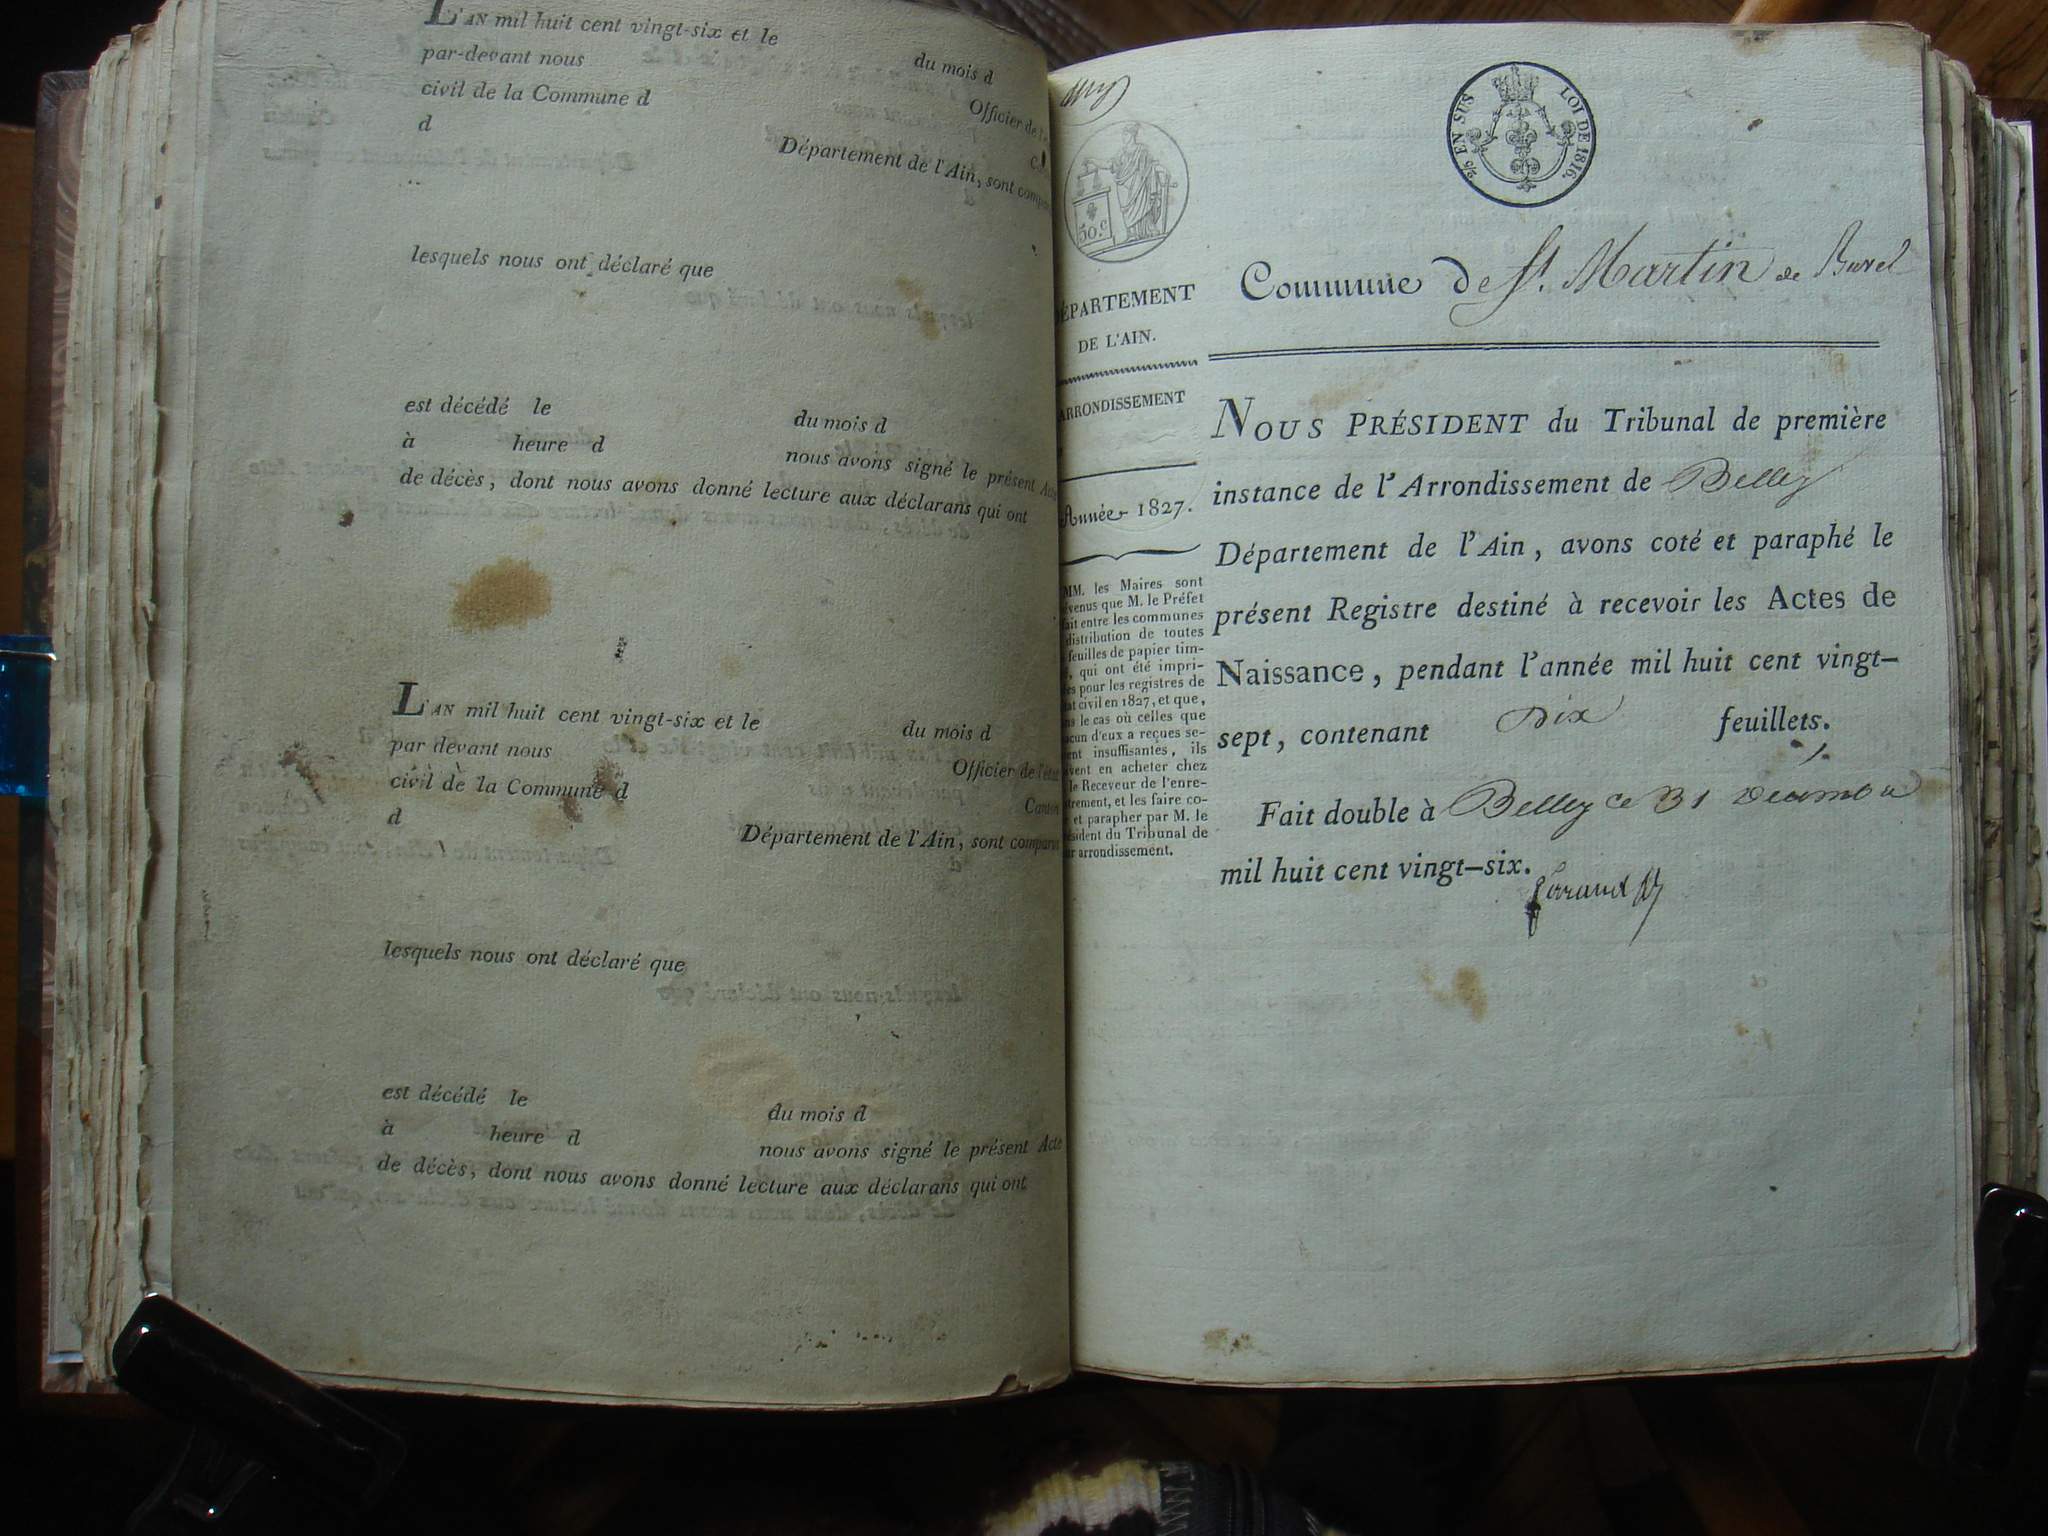 L'AN mil huit cent vingt-six et le du mois d
par-devant nous Officier de l'
civil de la Commune d
d Département de l'Ain, sont compar
lesquels nous ont déclaré que
est décédé le du mois d
à heure d nous avons signé le présent Acte
de décès, dont nous avons donné lecture aux déclarans qui ont
L'AN mil huit cent vingt-six et le du mois d
par devant nous Officier de l'état
civil de la Commune d Canton
d Département de l'Ain, sont comparus
lesquels nous ont déclaré que
est décédé le du mois d
à heure d nous avons signé le présent Acte
de décès, dont nous avons donné lecture aux déclarans qui ont
50.c
2/5 EN SUS LOI DE 1816.
DÉPARTEMENT
DE L'AIN.
ARRONDISSEMENT
Année 1827.
MM. les Maires sont
venus que M. le Préfet
fait entre les communes
distribution de toutes
feuilles de papier tim-
, qui ont été impri-
es pour les registres de
at civil en 1827, et que,
ns le cas où celles que
acun d'eux a reçues se-
ent insuffisantes, ils
vent en acheter chez
le Receveur de l'enre-
trement, et les faire co-
et parapher par M. le
ésident du Tribunal de
ur arrondissement.
Commune de St. Martin de Bavel
NOUS PRÉSIDENT du Tribunal de première
instance de l'Arrondissement de Belley
Département de l'Ain, avons coté et paraphé le
présent Registre destiné à recevoir les Actes de
Naissance, pendant l'année mil huit cent vingt-
sept, contenant Dix feuillets.
Fait double à Belley ce 31 Decembre
mil huit cent vingt-six.